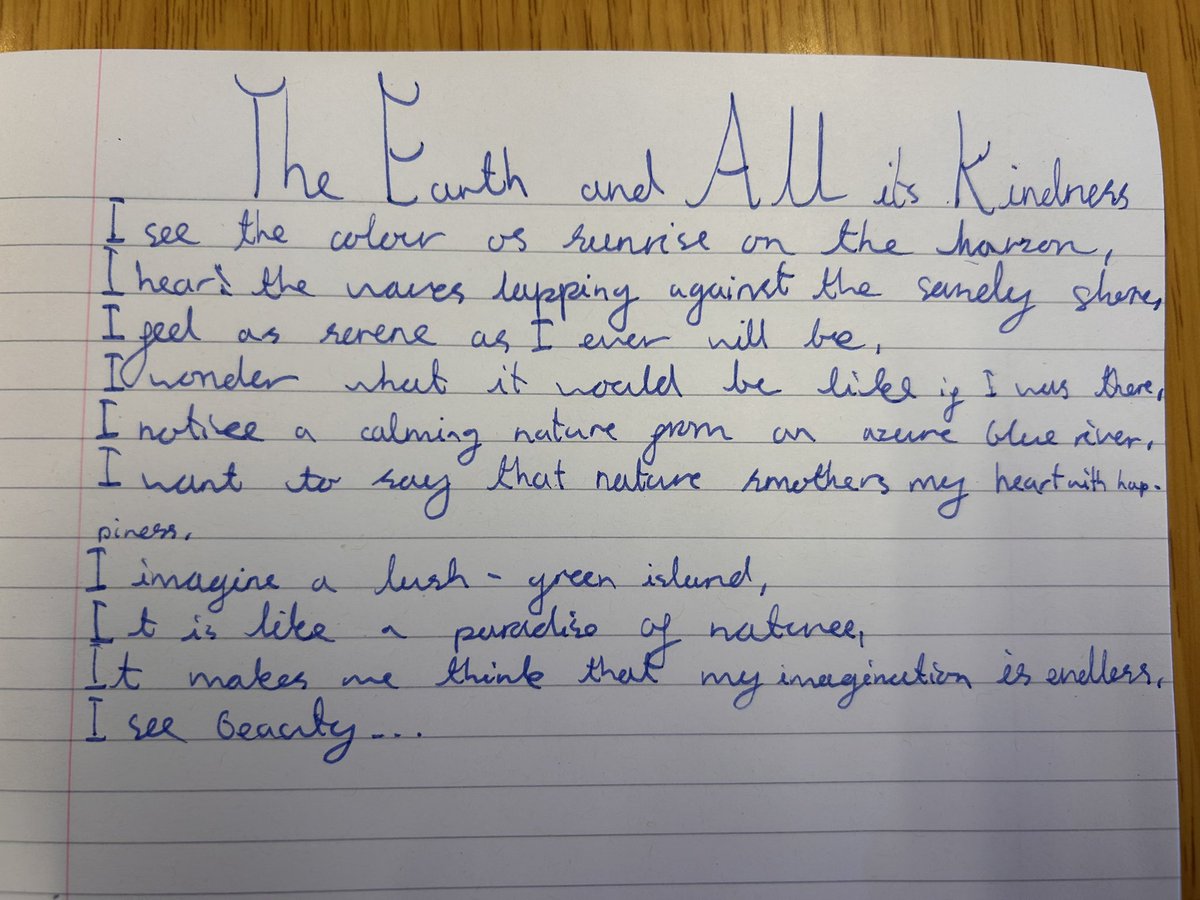 The Earth and All its Kindness
I see the colour os sunrise on the horzon,
I hear the waves lapping against the sandy shore,
I feel as serene as I ever will be,
I wonder what it would be like if I was there,
I notice a calming nature from an azure blue river.
I want to say that nature smothers my heart with hap-
piness.
I imagine a lush - green island,
It is like a paradise of nature,
It makes me think that my imagination is endless.
I see beauty...